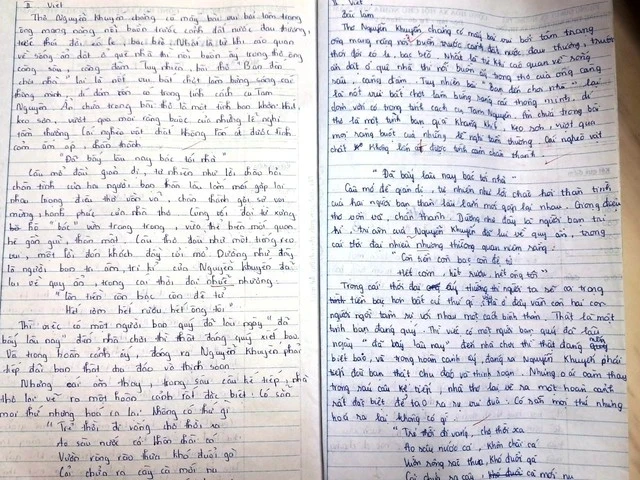 II. Viết
Thơ Nguyễn Khuyến chẳng có mấy bài vui bởi tâm trạng
ông mang nặng nỗi buồn trước cảnh đất nước đau thương,
trước thời đổi
Nhất là từ khi cáo quan
về sống ẩn dật ở quê nhà thì nỗi buồn ấy trong thơ ông
càng sâu, càng đậm. Tuy nhiên, bài thơ "Bạn đến
chơi nhà" lại là nét vui bất chợt làm bừng sáng cái
thông minh, dí dỏm vốn có trong tính cách Tam
Nguyên. Ẩn chứa trong bài thơ là một tình bạn
keo sơn, vượt qua mọi ràng buộc của những lễ nghi
tầm thường. Cái nghèo vật chất không lấn át được tình
cảm chân thành.
"Đã bấy lâu nay bác tới nhà"
Câu mở đầu giản dị, tự nhiên như lời chào hỏi
chân tình của hai người bạn thân lâu lắm mới gặp lại
nhau
Cùng với đại từ xưng
hô "bác" trang trọng, vừa thể hiện mối quan
hệ gần gũi, thân mật. Câu thơ đầu như một tiếng reo
vui, một lời đón khách đầy cởi mở. Dường như đây
là người bạn tri âm, tri kỉ của Nguyễn Khuyến đã
lui về quy ẩn, trong cái thời đại nhiễu nhương.
"Còn tiền còn bạc còn đệ tử
Hết cơm hết rượu hết ông tôi"
Thì việc có một người bạn quý đã lâu ngày "đã
bấy lâu nay" đến nhà chơi thì thật đáng quý biết bao.
Và trong hoàn cảnh ấy, đáng ra Nguyễn Khuyến phải
tiếp đãi bạn thật chu đáo và thịnh soạn.
Nhưng oái oăm thay, trong sáu câu kế tiếp, nhà
thơ lại vẽ ra một hoàn cảnh rất đặc biệt. Có sẵn
mọi thứ nhưng hoá ra lại không có gì
"Trẻ thời đi vắng chợ thời xa
Ao sâu nước cả khôn chài cá
Vườn rộng rào thưa khó đuổi gà
Cải chửa ra cây cà mới nụ
II. Viết
Bài làm
Thơ Nguyễn Khuyến chẳng có mấy bài vui bởi tâm trạng
ông mang nặng nỗi buồn trước cảnh đất nước đau thương, trước
thời đổi
Nhất là từ khi cáo quan về sống
ẩn dật ở quê nhà thì nỗi buồn ấy trong thơ của ông càng
sâu, càng đậm. Tuy nhiên bài "bạn đến chơi nhà" lại
là nét vui bất chợt làm bừng sáng cái thông minh, dí
dỏm vốn có trong tính cách Tam Nguyên, ẩn chứa trong bài
thơ là một tình bạn keo sơn, vượt qua
mọi ràng buộc của những lễ nghi tầm thường. Cái nghèo vật
chất không lấn át được tình cảm chân thành
"Đã bấy lâu nay bác tới nhà"
Câu mở đề giản dị, tự nhiên như lời chào hỏi thân tình
của hai người bạn thân lâu lắm mới gặp lại nhau. Giọng điệu
thơ chân thành. Dường như đây là người bạn tri
kỉ, tri âm của Nguyễn Khuyến đã lui về quy ẩn, trong
cái thời đại nhiễu nhương
"Còn tiền còn bạc còn đệ tử
Hết cơm, hết rượu hết ông tôi"
Trong cái thời đại ấy thường thì người ta sẽ coi trọng
tiền bạc hơn bất cứ thứ gì. Mà ở đây vẫn còn hai con
người ngồi tâm sự với nhau một cách bình thản. Thật là một
tình bạn đáng quý. Thì việc có một người bạn quý đã lâu
ngày "đã bấy lâu nay" đến nhà chơi thì thật đáng mừng
biết bao, và trong hoàn cảnh ấy, đáng ra Nguyễn Khuyến phải
tiếp đãi bạn thật chu đáo và thịnh soạn. Nhưng oái oăm thay
trong sáu câu kế tiếp, nhà thơ lại vẽ ra một hoàn cảnh
rất đặc biệt để tạo ra sự vui đùa. Có sẵn mọi thứ nhưng
hoá ra lại không có gì.
"Trẻ thời đi vắng, chợ thời xa
Ao sâu nước cả, khôn chài cá
Vườn rộng rào thưa, khó đuổi gà
Cải chửa ra cây, cà mới nụ